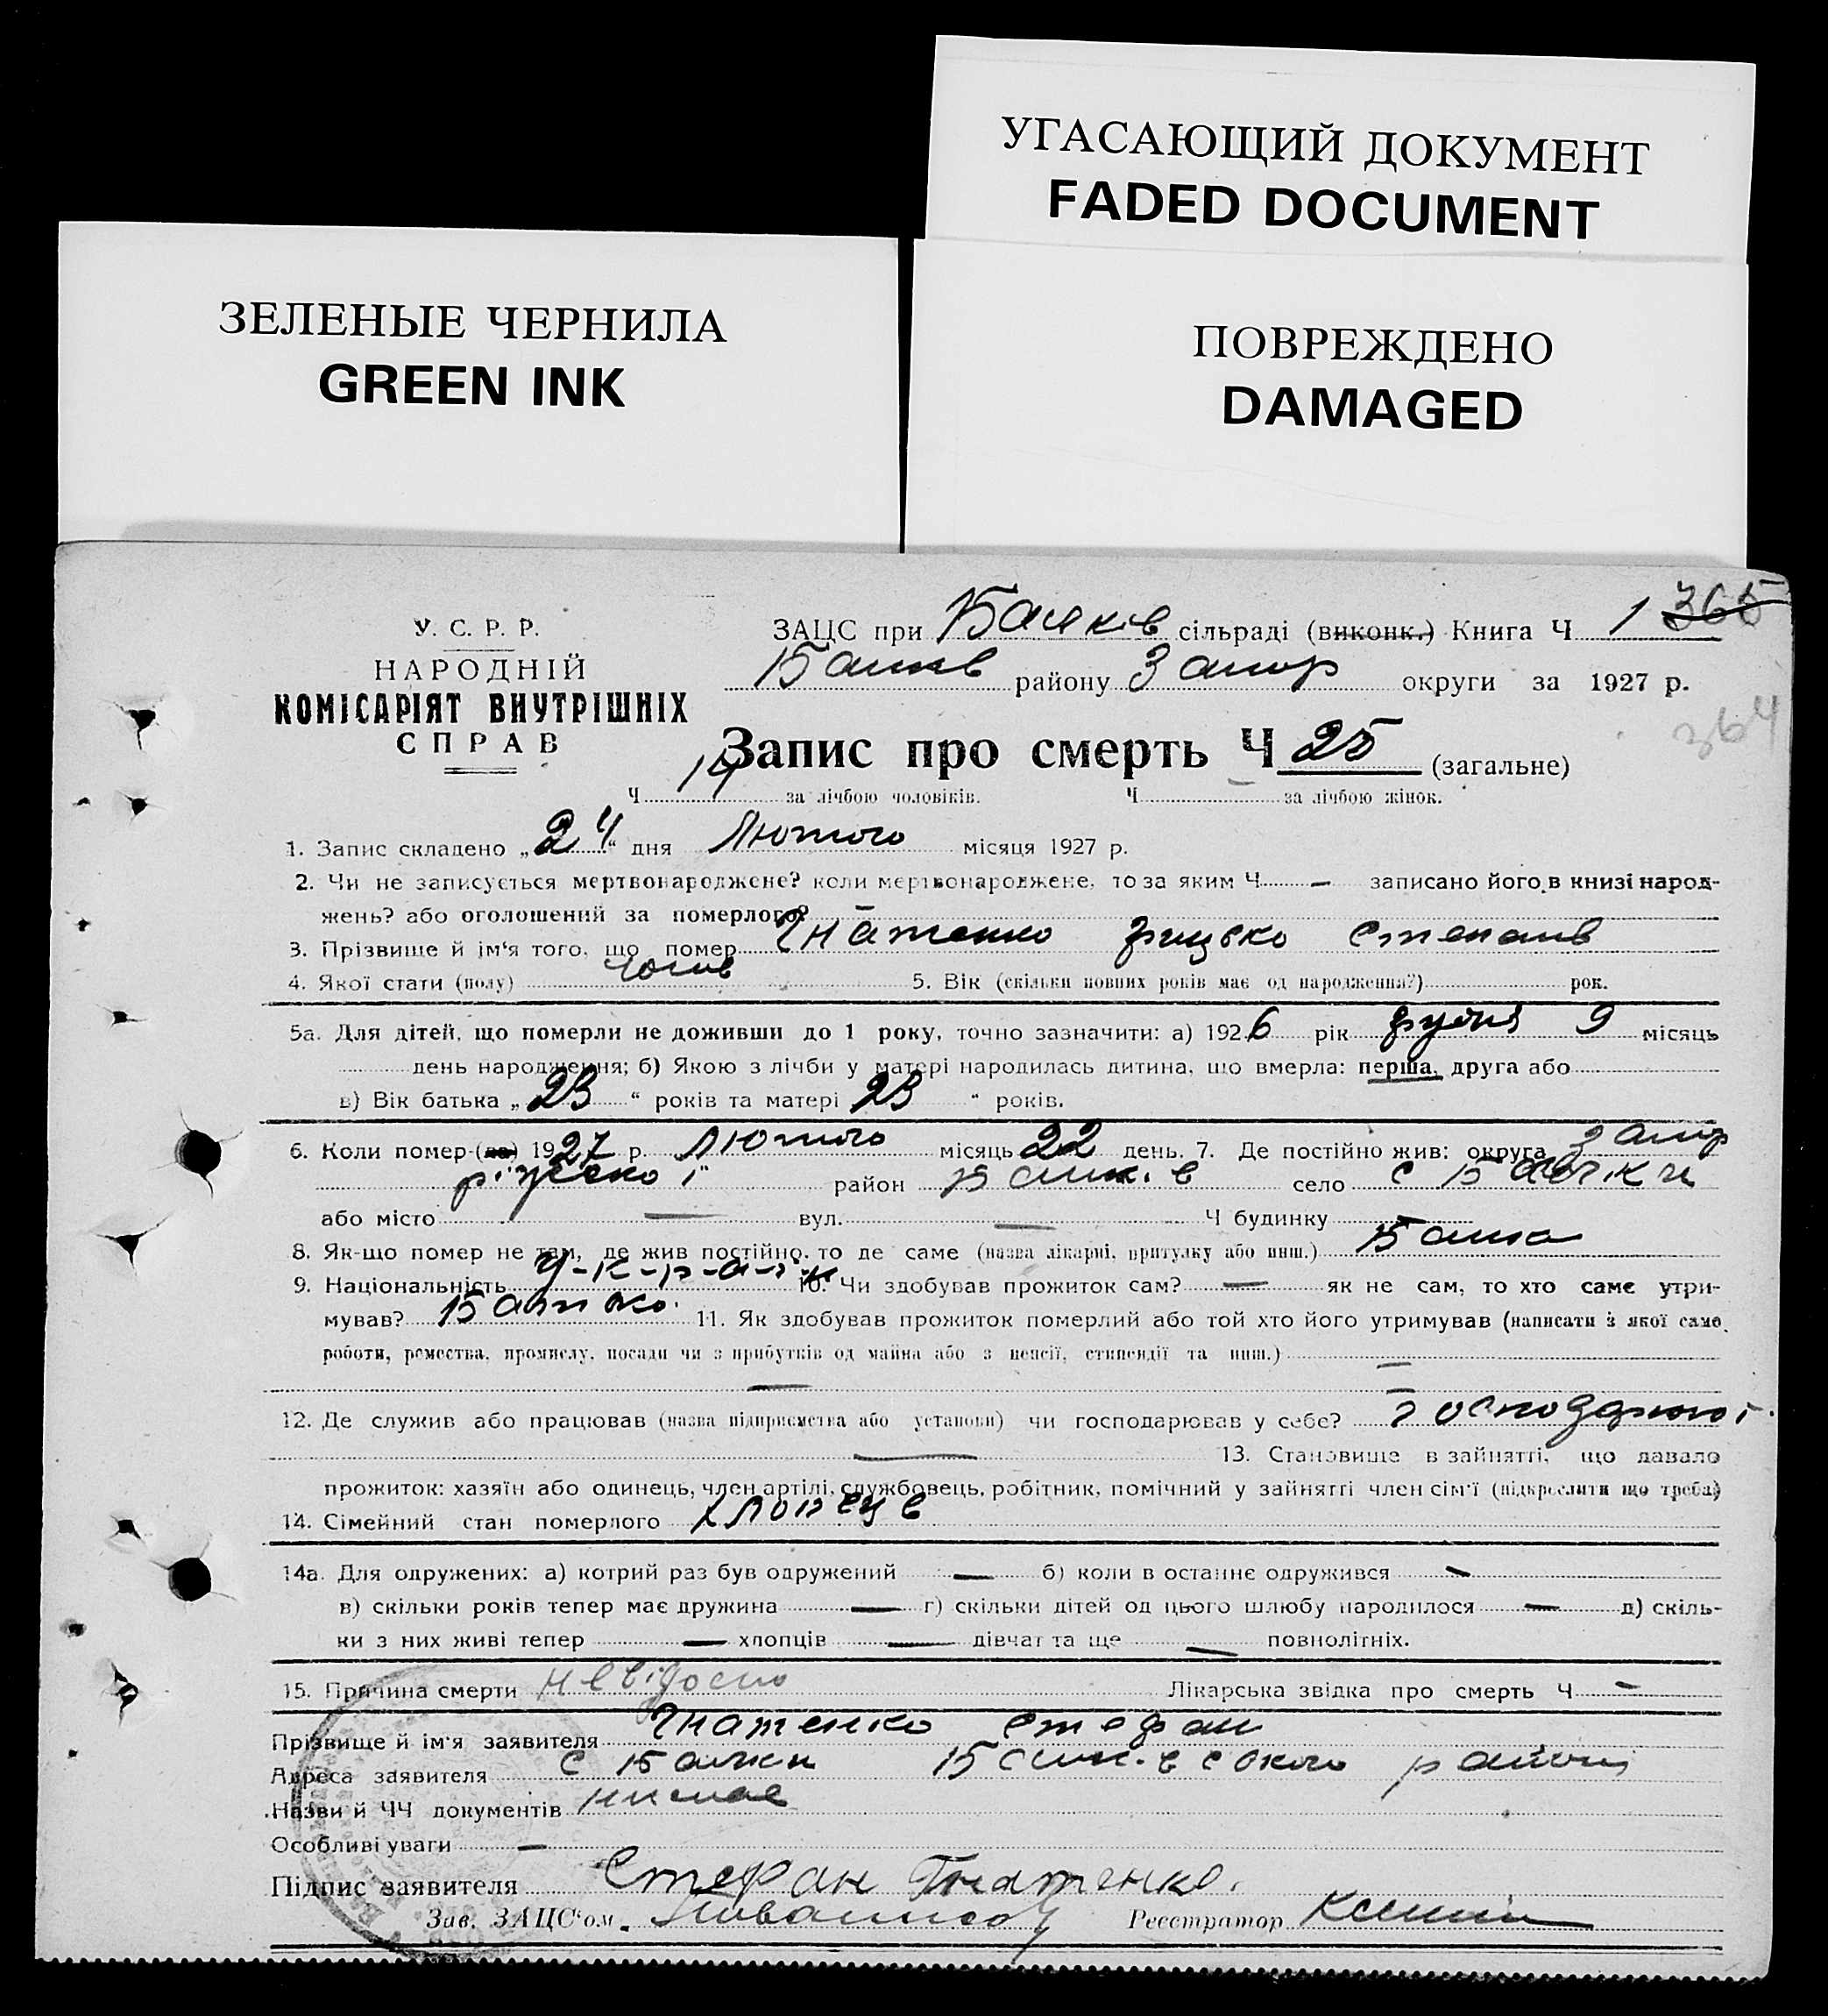 УГАСАЮЩИЙ ДОКУМЕНТ
FADED DOCUMENT
ЗЕЛЕНЫЕ ЧЕРНИЛА
GREEN INK
ПОВРЕЖДЕНО
DAMAGED
У. С. Р. Р.
НАРОДНІЙ
КОМІСАРІЯТ ВНУТРІШНІХ
СПРАВ
ЗАЦС при Балків сільраді (виконк.) Книга Ч 1 365
району Запор округи за 1927 р.
364
Запис про смерть Ч 25 (загальне)
Ч 14 за лічбою чоловіків. Ч — за лічбою жінок.
1. Запис складено „24“ дня Лютого місяця 1927 р.
2. Чи не записується мертвонароджене? коли мертвонароджене, то за яким Ч — записано його в книзі народ-
жень? або оголошений за померлого? —
3. Прізвище й ім'я того, що помер Гнатенко Грицько Степанів
4. Якої стати (полу) 5. Вік (скільки повних років має од народження?) рок.
5а. Для дітей, що померли не доживши до 1 року, точно зазначити: а) 1926 рік грудня 9 місяць
день народження; б) Якою з лічби у матері народилась дитина, що вмерла: перша, друга або
в) Вік батька „23“ років та матері 23 “ років.
6. Коли помер (ла) 1927 р. Лютого місяць 22 день. 7. Де постійно жив: округа Запор
ріжської район село с Балки
або місто — вул. — Ч будинку —
8. Як-що помер не там, де жив постійно, то де саме (назва лікарні, притулку або инш.)
9. Національність У-к-р-а-ї-н 10. Чи здобував прожиток сам? — як не сам, то хто саме утри-
мував? Батько. 11. Як здобував прожиток померлий або той хто його утримував (написати з якої саме
роботи, ремества, промислу, посади чи з прибутків од майна або з пенсії, стипендії та инш.) —
—
12. Де служив або працював (назва підприємства або установи) чи господарював у себе? Господарює
— 13. Становище в зайнятті, що давало
прожиток: хазяїн або одинець, член артілі, службовець, робітник, помічний у зайнятті член сім'ї (підкреслити що треба)
14. Сімейний стан померлого хлопець
14а. Для одружених: а) котрий раз був одружений — б) коли в останнє одружився —
в) скільки років тепер має дружина — г) скільки дітей од цього шлюбу народилося — д) скіль-
ки з них живі тепер — хлопців — дівчат та ще — повнолітніх.
15. Причина смерти невідомо Лікарська звідка про смерть Ч —
Прізвище й ім'я заявителя Гнатенко Стефан
Адреса заявителя с Балки району
Назви й ЧЧ документів немає
Особливі уваги —
Підпис заявителя Стефан Гнатенко.
Зав. ЗАЦС'ом. Реєстратор